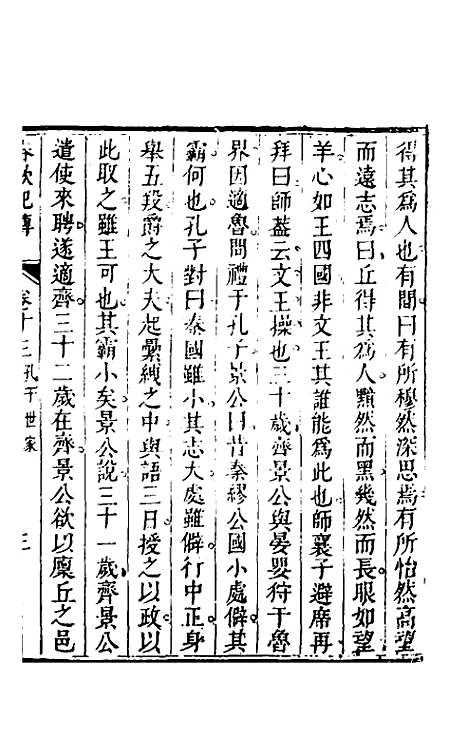 得其爲人也有間曰有所穆然深思焉有所怡然高望
而遠志焉曰丘得其爲人黯然而黑幾然而長眼如望
羊心如王四國非文王其誰能爲此也師襄子避席再
拜曰師蓋云文王操也三十歲齊景公與晏嬰狩于魯
界因適魯問禮于孔子景公曰昔秦繆公國小處僻其
霸何也孔子對曰秦國雖小其志大處雖僻行中正身
舉五羖爵之大夫起纍絏之中與語三日授之以政以
此取之雖王可也其霸小矣景公說三十一歲齊景公
遣使來聘遂適齊三十二歲在齊景公欲以廩丘之邑
春秋紀傳 卷十三 孔子世家 三